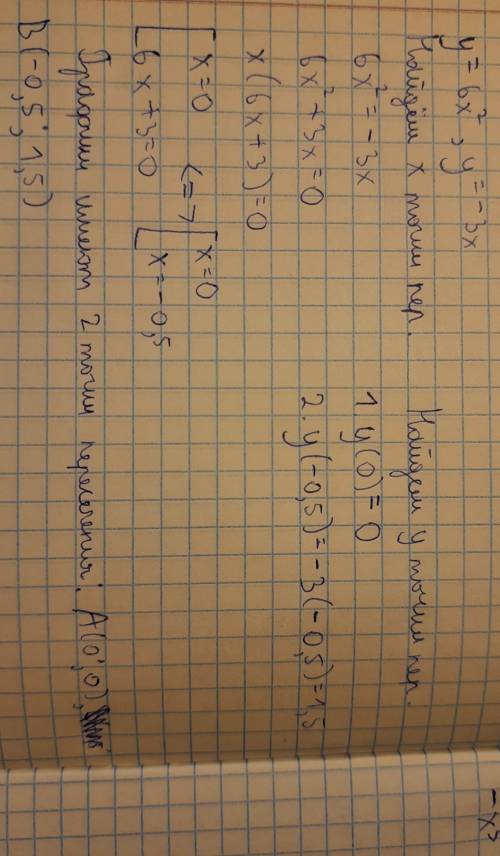 y = 6x², y = -3x
Найдём x точки пер.
6x² = -3x
6x² + 3x = 0
x(6x+3) = 0
[ x=0
6x+3=0
<=> [ x=0
x=-0,5
Найдем y точки пер.
1. y(0) = 0
2. y(-0,5) = -3(-0,5) = 1,5
Графики имеют 2 точки пересечения: A(0;0),
B(-0,5; 1,5)
-x³